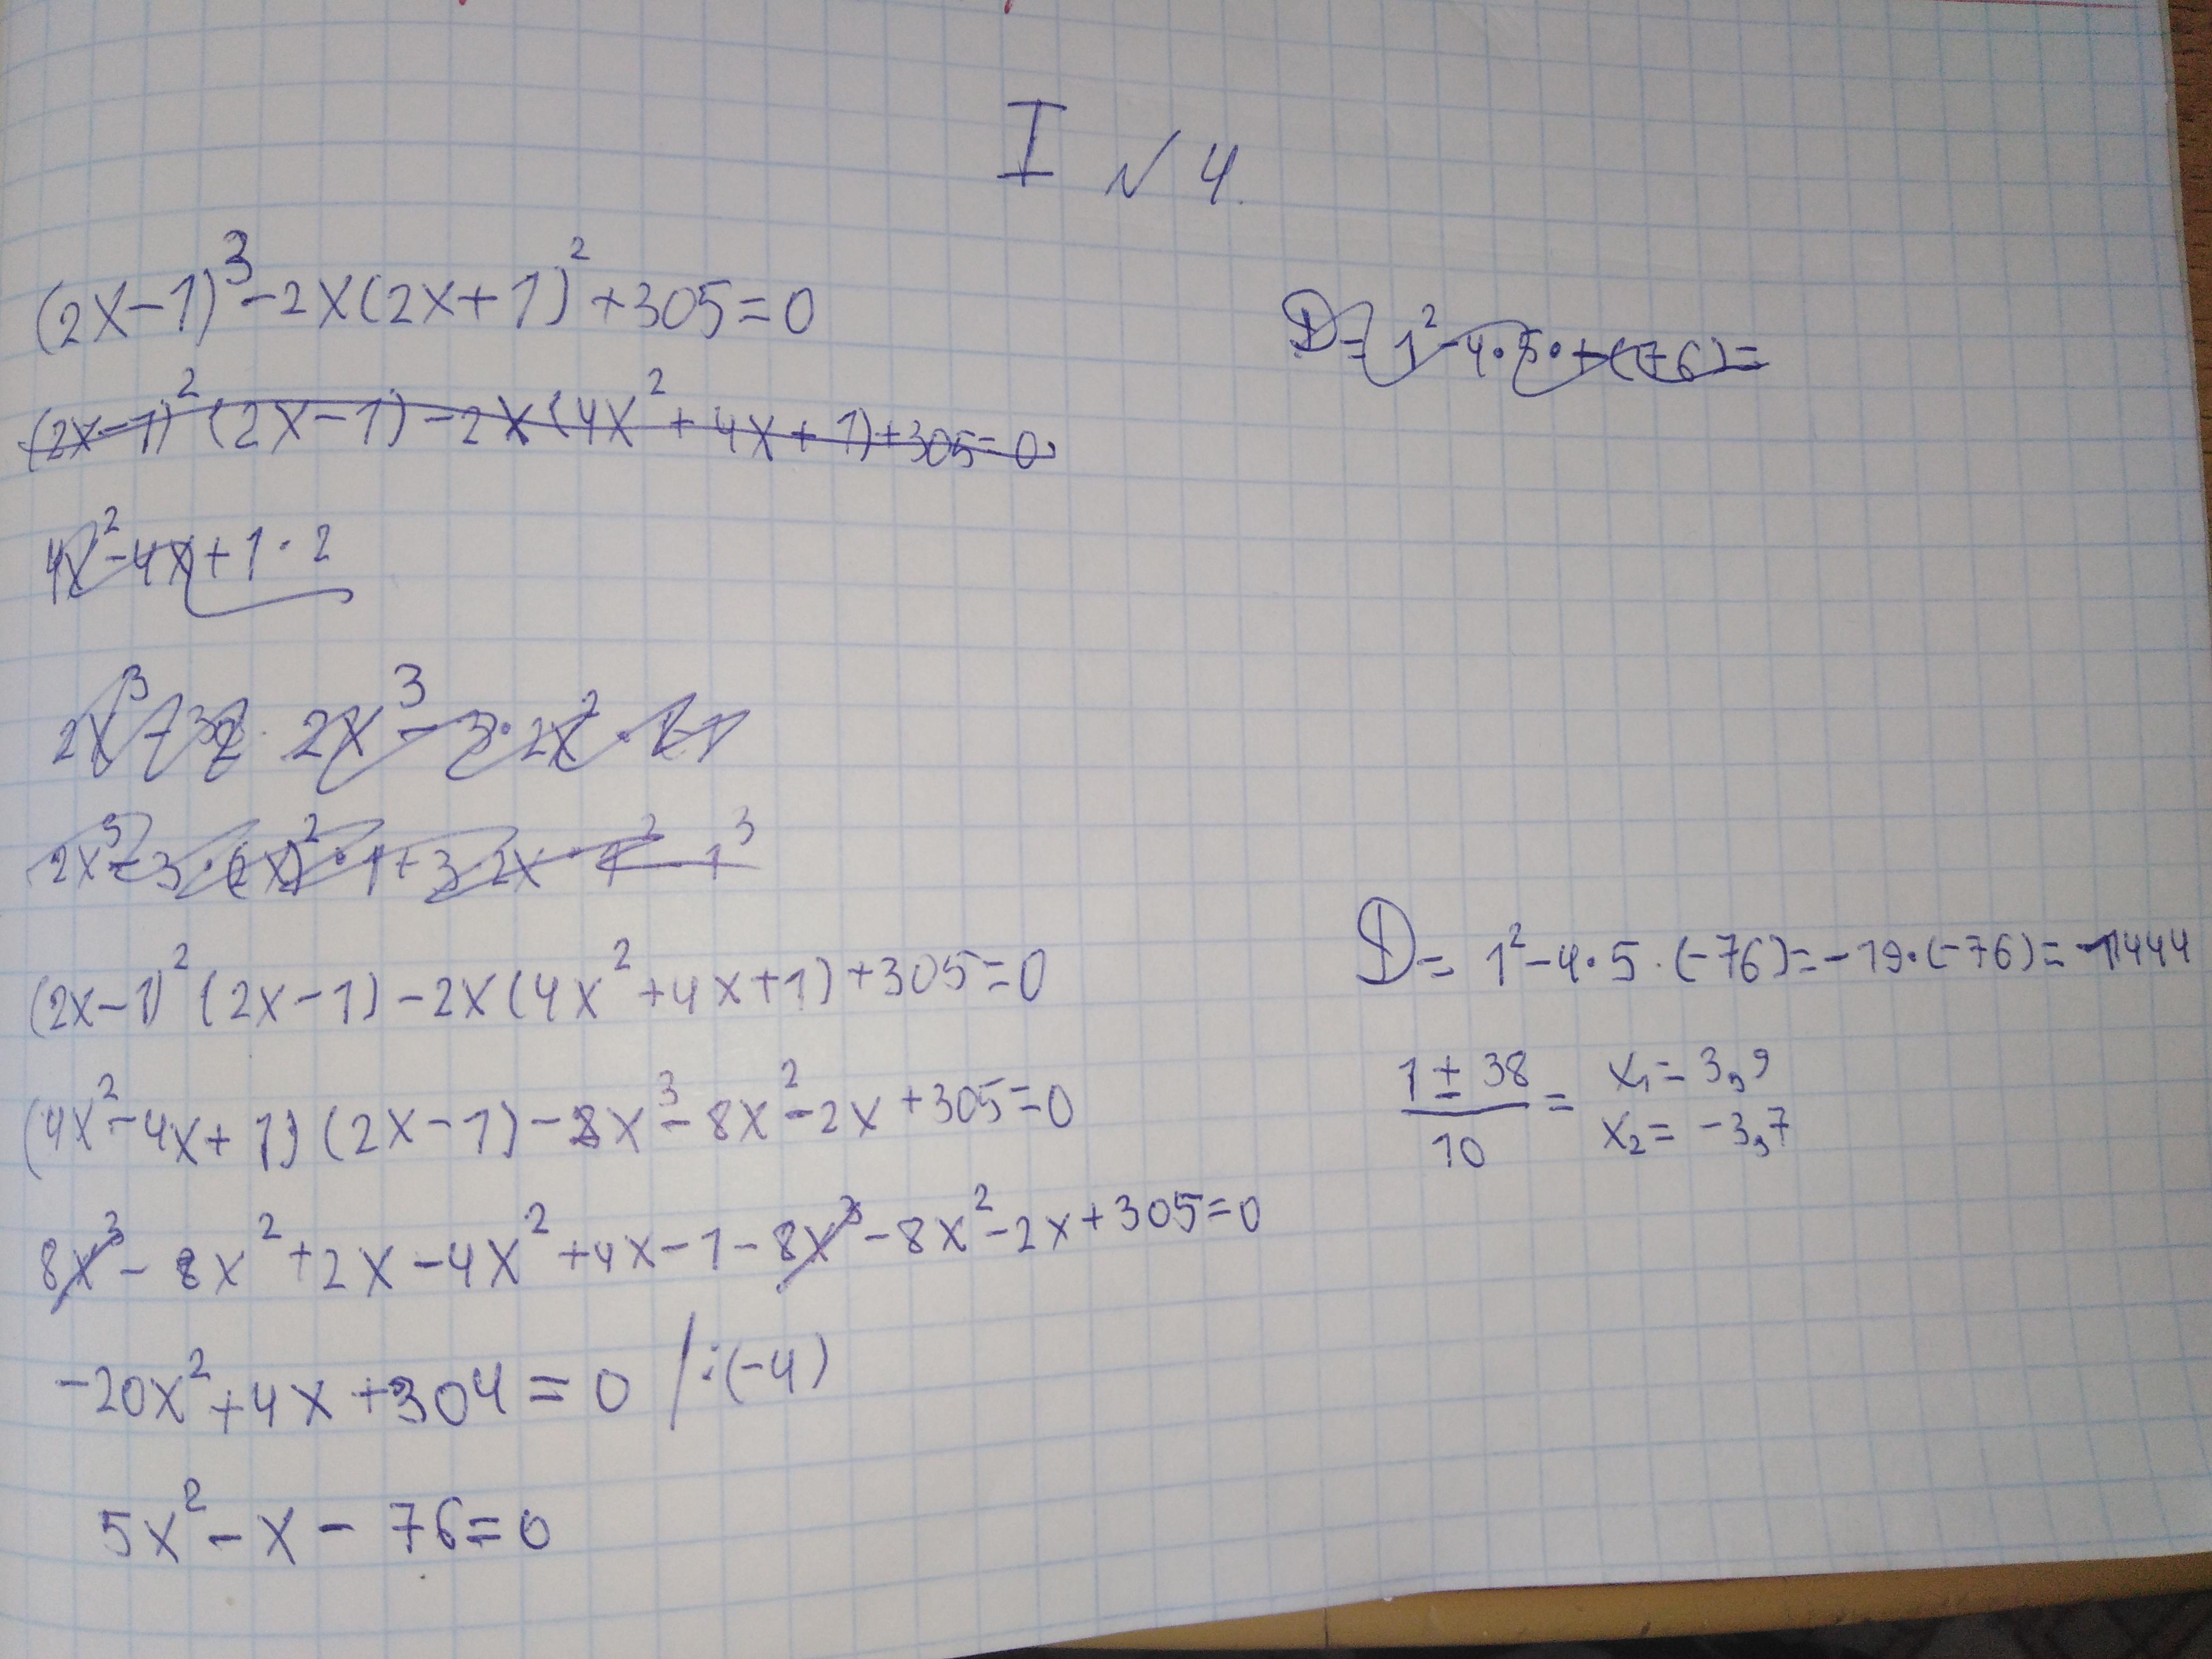 I №4.
(2x-1)³-2x(2x+1)²+305=0
(2x-1)²(2x-1)-2x(4x²+4x+1)+305=0
4x²-4x+1·2
2x³-3·2x²·1
2x³-3·(2x)²·1+3·2x·1²-1³
(2x-1)²(2x-1)-2x(4x²+4x+1)+305=0
(4x²-4x+1)(2x-1)-8x³-8x²-2x+305=0
8x³-8x²+2x-4x²+4x-1-8x³-8x²-2x+305=0
-20x²+4x+304=0 /:(-4)
5x²-x-76=0
D=1²-4·5·(-76)=
D=1²-4·5·(-76)=-19·(-76)=1444
1±38
10
=
x₁=3,9
x₂=-3,7